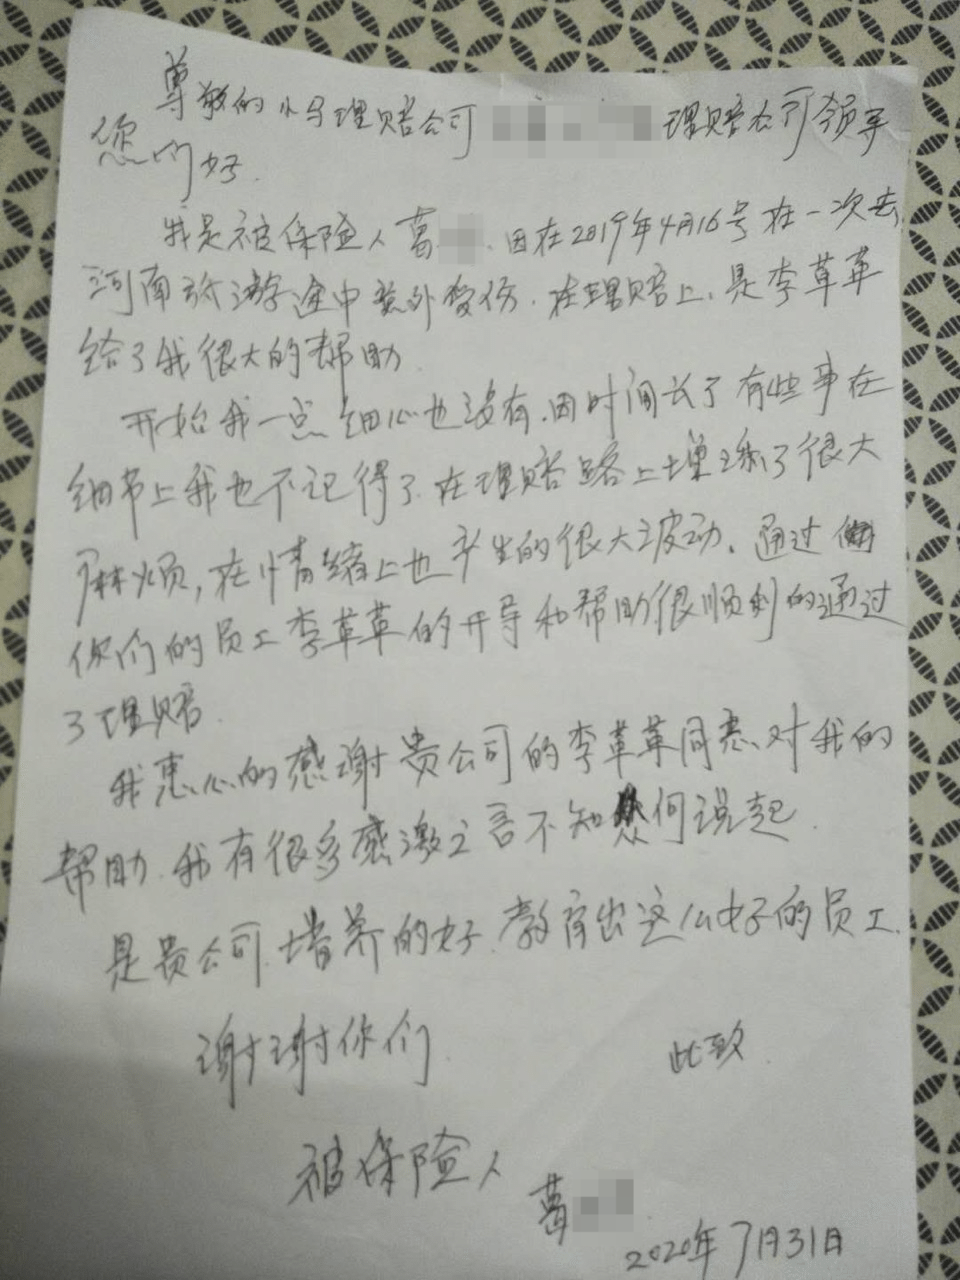 尊敬的小马理赔公司 理赔公司领导
您们好.
我是被保险人葛 .因在2019年4月16号在一次去
河南旅游途中意外受伤.在理赔上.是李革革
给了我很大的帮助.
开始我一点细心也没有.因时间长了有些事在
细节上我也不记得了.在理赔路上增添了很大
麻烦,在情绪上也产生的很大波动.通过
你们的员工李革革的开导和帮助很顺利的通过
了理赔.
我衷心的感谢贵公司的李革革同志.对我的
帮助.我有很多感激之言不知从何说起.
是贵公司.培养的好.教育出这么好的员工.
谢谢你们. 此致.
被保险人
葛
2020年7月31日